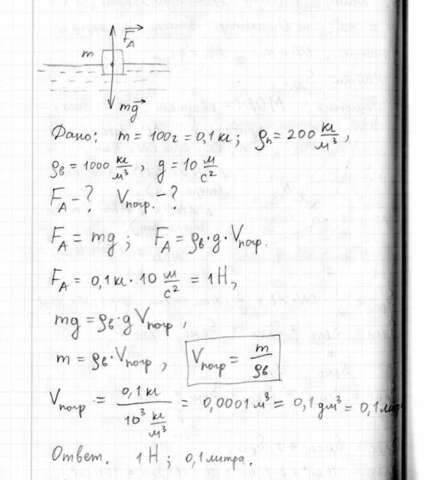 F_A
m
mg
Дано: m = 100г = 0,1 кг; ρп = 200 кг/м³,
ρв = 1000 кг/м³, g = 10 м/с²
F_A - ? Vпогр. - ?
F_A = mg; F_A = ρв·g·Vпогр.
F_A = 0,1 кг · 10 м/с² = 1Н,
mg = ρв·g Vпогр,
m = ρв·Vпогр, Vпогр = m/ρв
Vпогр = 0,1 кг / 10³ кг/м³ = 0,0001 м³ = 0,1 дм³ = 0,1
Ответ. 1Н; 0,1 литра.